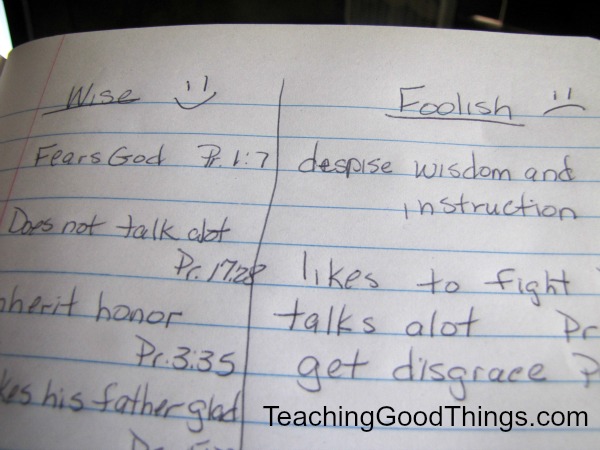 Wise
Fears God Pr. 1:7
Does not talk alot
Pr. 17:28
inherit honor
Pr. 3:35
his father glad
Foolish
despise wisdom and
instruction
likes to fight
talks alot Pr
get disgrace P
TeachingGoodThings.com